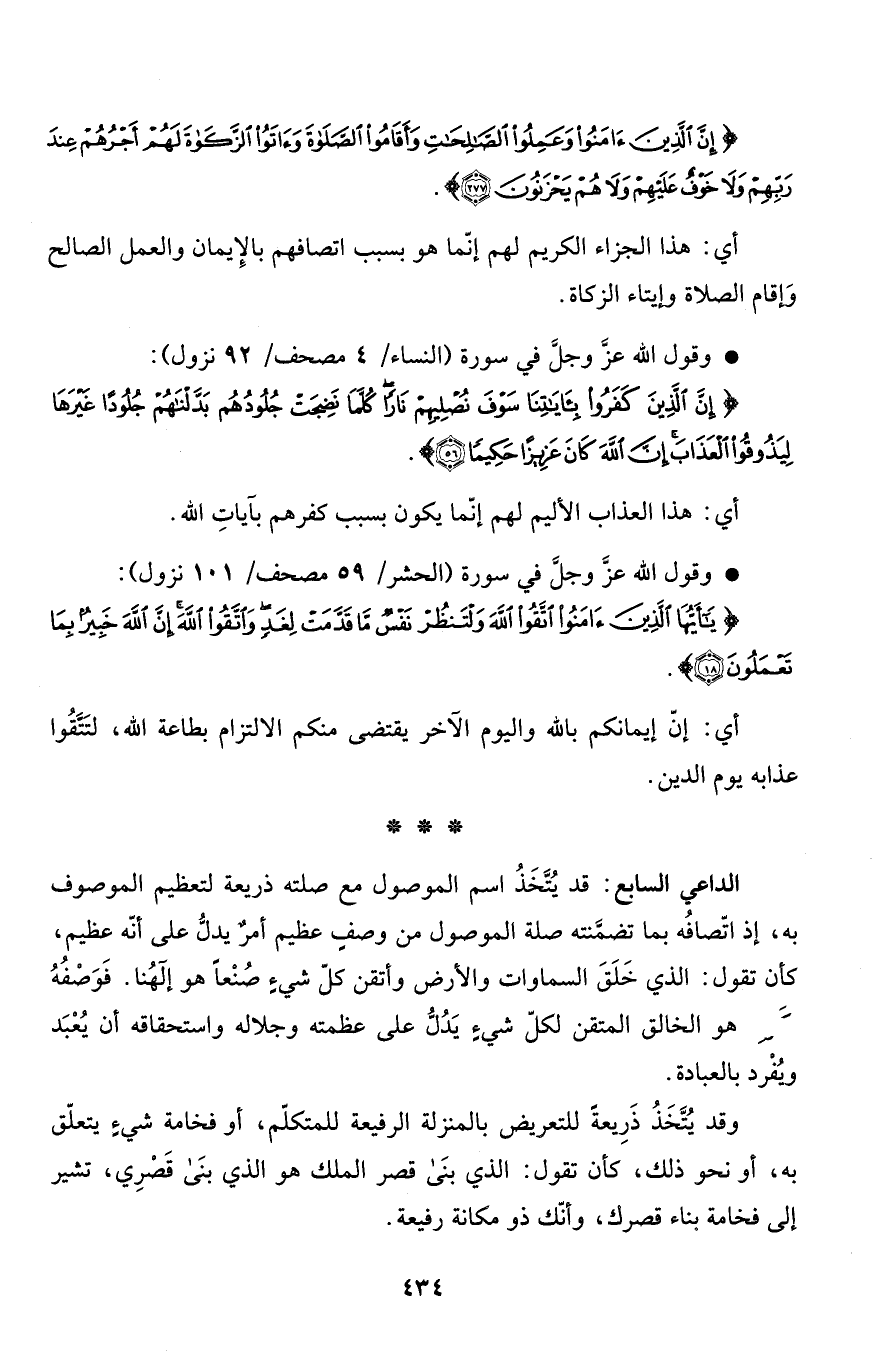 ﴿ إِنَّ ٱلَّذِينَ ءَامَنُوا۟ وَعَمِلُوا۟ ٱلصَّٰلِحَٰتِ وَأَقَامُوا۟ ٱلصَّلَوٰةَ وَءَاتَوُا۟ ٱلزَّكَوٰةَ لَهُمْ أَجْرُهُمْ عِندَ
رَبِّهِمْ وَلَا خَوْفٌ عَلَيْهِمْ وَلَا هُمْ يَحْزَنُونَ ٢٧٧﴾ .
أي: هذا الجزاء الكريم لهم إنّما هو بسبب اتصافهم بالإِيمان والعمل الصالح
وَإقام الصلاة وإيتاء الزكاة.
● وقول الله عزَّ وجلَّ في سورة (النساء/ ٤ مصحف/ ٩٢ نزول):
﴿ إِنَّ ٱلَّذِينَ كَفَرُوا۟ بِـَٔايَٰتِنَا سَوْفَ نُصْلِيهِمْ نَارًا كُلَّمَا نَضِجَتْ جُلُودُهُم بَدَّلْنَٰهُمْ جُلُودًا غَيْرَهَا
لِيَذُوقُوا۟ ٱلْعَذَابَ إِنَّ ٱللَّهَ كَانَ عَزِيزًا حَكِيمًا ٥٦﴾ .
أي: هذا العذاب الأليم لهم إنّما يكون بسبب كفرهم بآياتِ الله.
● وقول الله عزَّ وجلَّ في سورة (الحشر/ ٥٩ مصحف/ ١٠١ نزول):
﴿ يَٰٓأَيُّهَا ٱلَّذِينَ ءَامَنُوا۟ ٱتَّقُوا۟ ٱللَّهَ وَلْتَنظُرْ نَفْسٌ مَّا قَدَّمَتْ لِغَدٍ وَٱتَّقُوا۟ ٱللَّهَ إِنَّ ٱللَّهَ خَبِيرٌۢ بِمَا
تَعْمَلُونَ ١٨﴾ .
أي: إنّ إيمانكم بالله واليوم الآخر يقتضى منكم الالتزام بطاعة الله، لتَتَّقُوا
عذابه يوم الدين.
* * *
الداعي السابع: قد يُتَّخَذُ اسم الموصول مع صلته ذريعة لتعظيم الموصوف
به، إذ اتّصافُه بما تضمَّنته صلة الموصول من وصفٍ عظيم أمرٌ يدلُّ على أنّه عظيم،
كأن تقول: الذي خَلَقَ السماوات والأرض وأتقن كلّ شيءٍ صُنْعاً هو إلَهُنا. فَوَصْفُهُ
هو الخالق المتقن لكلّ شيءٍ يَدُلُّ على عظمته وجلاله واستحقاقه أن يُعْبَد
ويُفْرد بالعبادة.
وقد يُتَّخَذُ ذَرِيعةً للتعريض بالمنزلة الرفيعة للمتكلّم، أو فخامة شيءٍ يتعلّق
به، أو نحو ذلك، كأن تقول: الذي بنَىٰ قصر الملك هو الذي بنَىٰ قَصْرِي، تشير
إلى فخامة بناء قصرك، وأنّك ذو مكانة رفيعة.
٤٣٤